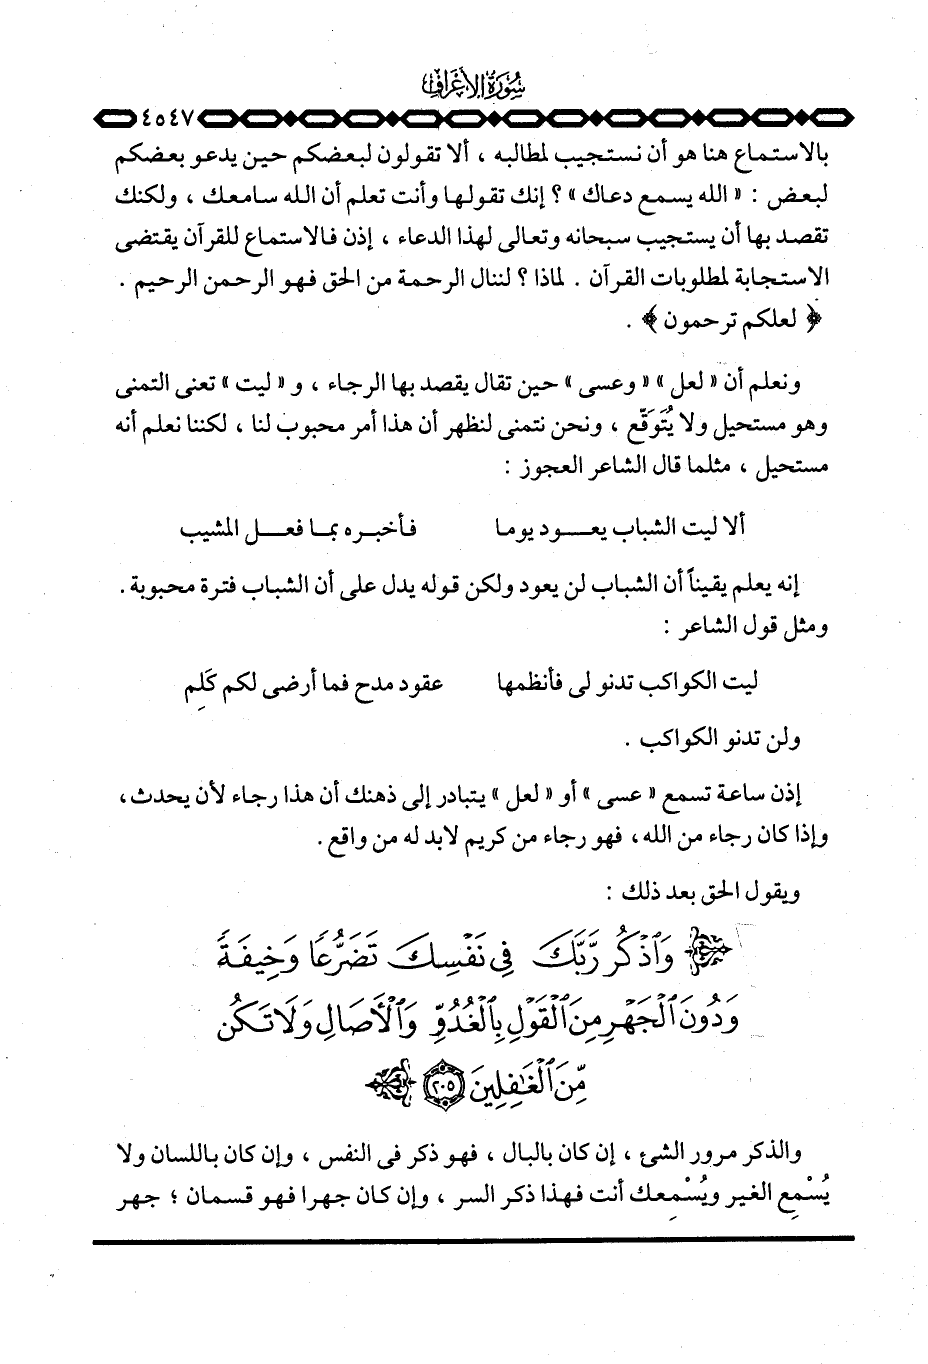 سُورَةُ الأَعْرَافِ
٤٥٤٧
بالاستماع هنا هو أن نستجيب لمطالبه ، ألا تقولون لبعضكم حين يدعو بعضكم
لبعض : « الله يسمع دعاك » ؟ إنك تقولها وأنت تعلم أن الله سامعك ، ولكنك
تقصد بها أن يستجيب سبحانه وتعالى لهذا الدعاء ، إذن فالاستماع للقرآن يقتضى
الاستجابة لمطلوبات القرآن . لماذا ؟ لننال الرحمة من الحق فهو الرحمن الرحيم .
﴿ لعلكم ترحمون ﴾ .
ونعلم أن « لعل » « وعسى » حين تقال يقصد بها الرجاء ، و « ليت » تعنى التمنى
وهو مستحيل ولا يُتَوَقّع ، ونحن نتمنى لنظهر أن هذا أمر محبوب لنا ، لكننا نعلم أنه
مستحيل ، مثلما قال الشاعر العجوز :
ألا ليت الشباب يعـــود يوما فـأخبـره بمـا فعـــل المشيب
إنه يعلم يقيناً أن الشباب لن يعود ولكن قوله يدل على أن الشباب فترة محبوبة .
ومثل قول الشاعر :
ليت الكواكب تدنو لى فأنظمها عقود مدح فما أرضى لكم كَلِم
ولن تدنو الكواكب .
إذن ساعة تسمع « عسى » أو « لعل » يتبادر إلى ذهنك أن هذا رجاء لأن يحدث ،
وإذا كان رجاء من الله ، فهو رجاء من كريم لابد له من واقع .
ويقول الحق بعد ذلك :
﴿ وَٱذْكُر رَّبَّكَ فِى نَفْسِكَ تَضَرُّعًا وَخِيفَةً
وَدُونَ ٱلْجَهْرِ مِنَ ٱلْقَوْلِ بِٱلْغُدُوِّ وَٱلْأَصَالِ وَلَا تَكُن
مِّنَ ٱلْغَٰفِلِينَ ٢٠٥ ﴾
والذكر مرور الشئ ، إن كان بالبال ، فهو ذكر فى النفس ، وإن كان باللسان ولا
يُسْمِع الغير ويُسْمِعك أنت فهذا ذكر السر ، وإن كان جهرا فهو قسمان ؛ جهر